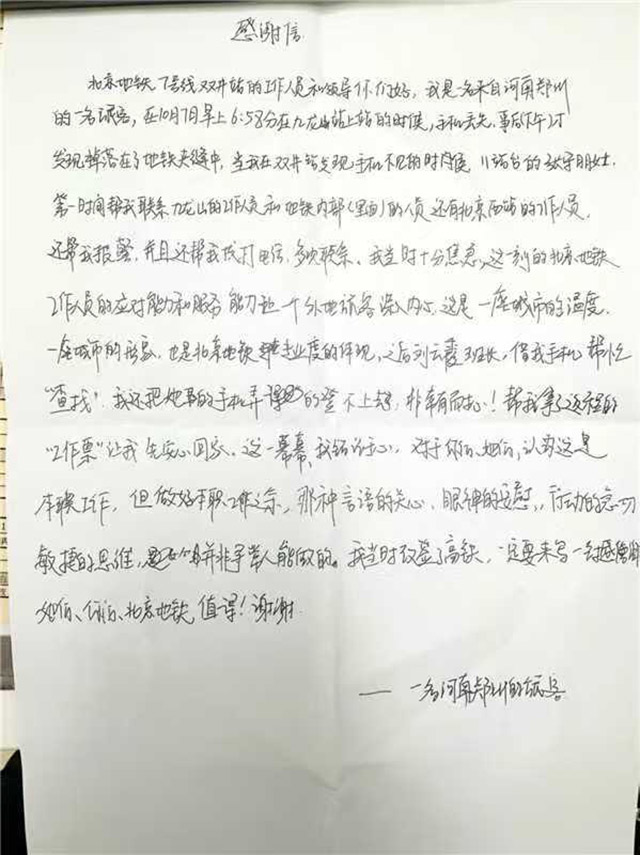 感谢信
北京地铁7号线双井站的工作人员和领导你们好，我是一名来自河南郑州
的一名旅客，在10月7日早上6:58分在九龙山站上站的时候，手机丢失，事后下午
发现掉落在了地铁夹缝中，当我在双井站发现手机不见的时候，站台的
第一时间帮我联系九龙山的工作人员和地铁内部的人员还有北京西站的工作人员，
还帮我报警，并且还帮我拨打电话，多次联系、我当时十分焦急，这一刻的北京地铁
工作人员的应对能力和服务能力让一个外地旅客深入内心，这是一座城市的温度，
一座城市的形象，也是北京地铁专业度的体现，之后刘云霞班长，借我手机帮忙
“查找”，我还把她的手机弄的登不上去，非常有耐心！帮我拿
“工作票”让我先安心回家、这一幕幕，我铭记于心，对于你们、她们，认为这是
本职工作，但做好本职工作之余，那种言语的关心，眼神的安慰，行动的
敏捷的思维，并非寻常人能做的。我当时改签了高铁，一定要来写一封感谢
她们、你们、北京地铁，值得！谢谢
—— 一名河南郑州的旅客